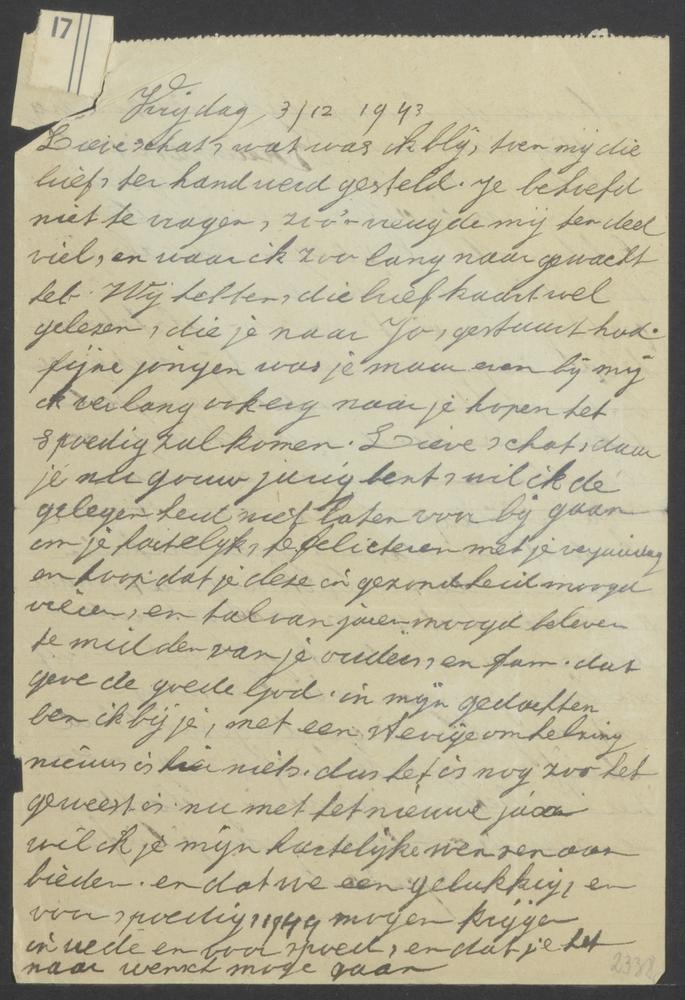 17
Vrijdag 3/12 1943
Lieve schat, wat was ik blij, toen mij die
brief, ter hand werd gesteld. je behoefd
niet te vragen, zoo'n vreugde mij ten deel
viel, en waar ik zoo lang naar gewacht
heb. Wij hebben, die briefkaart wel
gelezen, die je naar Jo, gestuurt had.
fijne jongen was je maar even bij mij
ik verlang ook erg naar je hopen het
spoedig zal komen. Lieve schat, daar
je nu gouw jarig bent, wil ik de
gelegenheid niet laten voor bij gaan
om je hartelijk, te felicteren met je verjaardag
en hoop dat je deze in gezondheid moogd
vieren, en tal van jaren moogd beleven
te midden van je ouders, en fam. dat
geve de goede God. in mijn gedachten
ben ik bij je, met een stevige omhelzing
nieuws is hier niets. dus het is nog zoo het
geweest is. nu met het nieuwe jaar
wil ik je mijn hartelijke wensen aan
bieden. en dat we een gelukkig, en
voor spoedig, 1944 mogen krijgen
in vrede en voor spoed, en dat je het
naar wensch moge gaan
2338